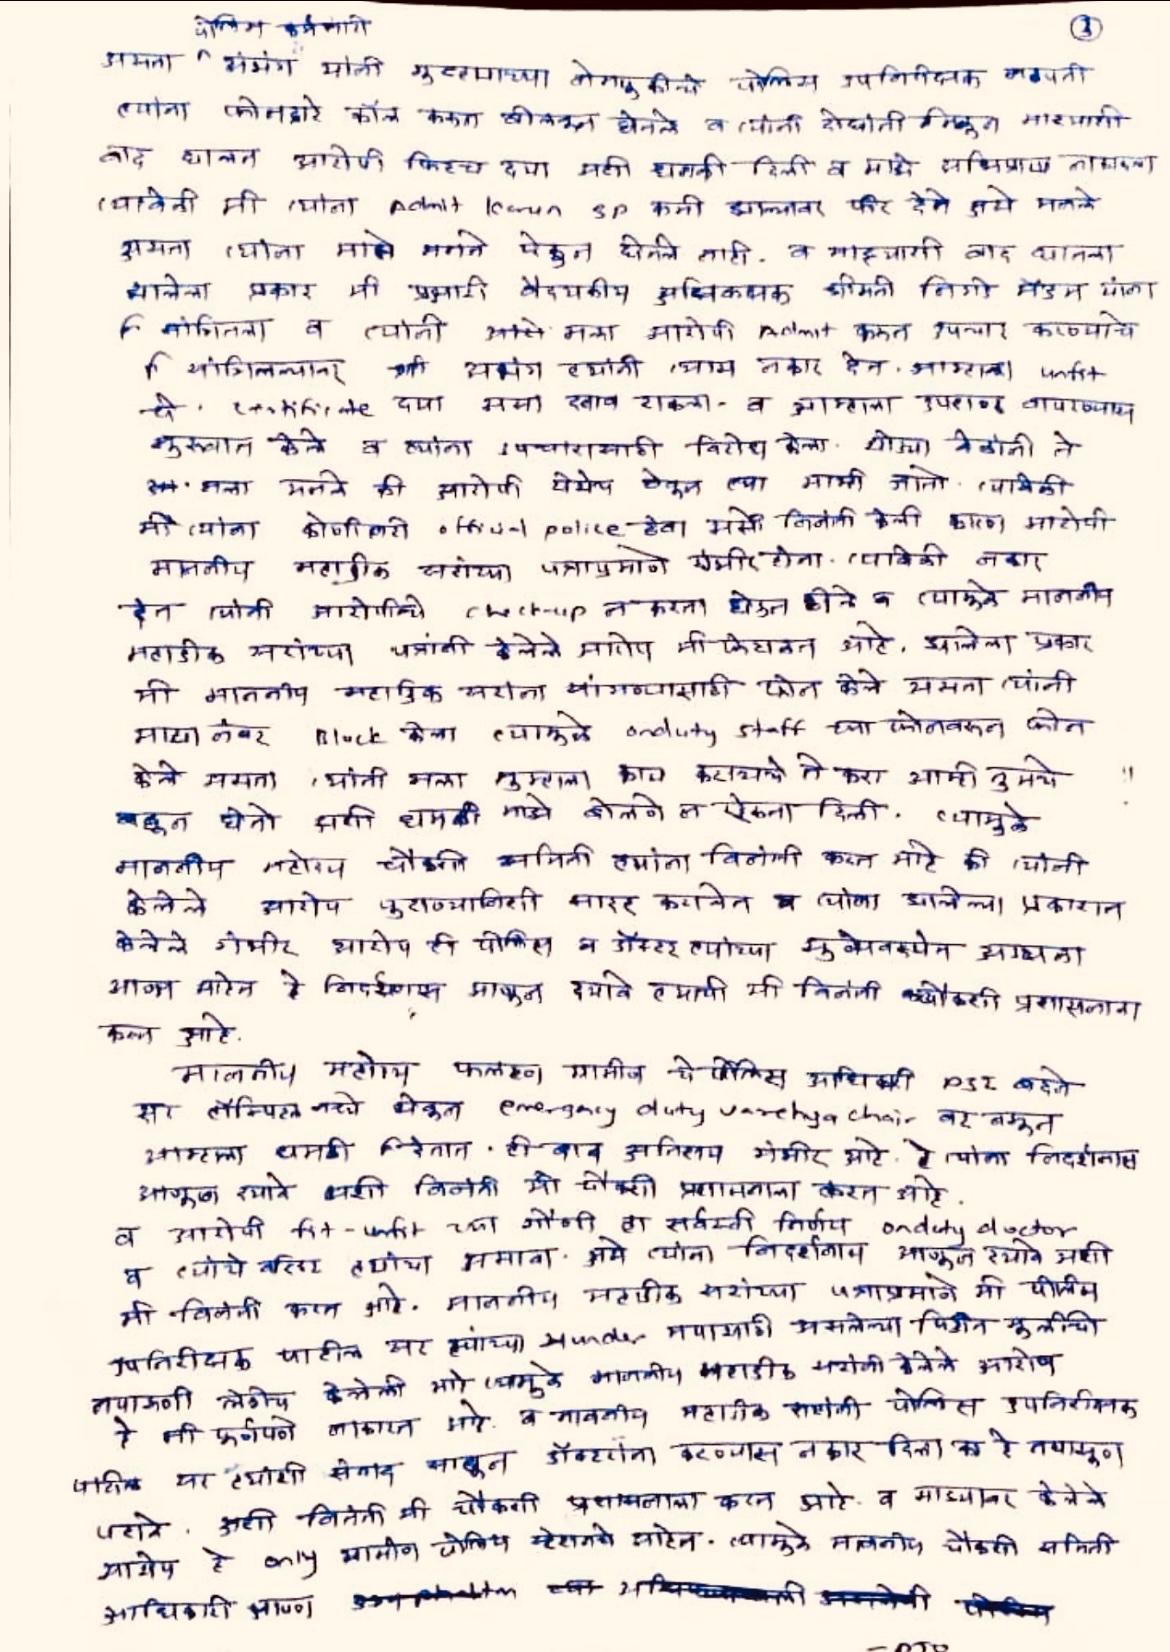 पोलिस कर्मचारी
③
असता यांनी पोलिस उपनिरीक्षक
त्यांना फोनद्वारे कॉल करून बोलवून घेतले व त्यांनी दोघांनी मिळून माझ्याशी
वाद घालत आरोपी फिटच द्या अशी धमकी दिली व माझे
त्यावेळी मी त्यांना Admit करून BP कमी झाल्यावर फीट देते असे म्हणले
असता त्यांनी माझे म्हणणे ऐकून घेतले नाही. व माझ्याशी वाद घातला
झालेला प्रकार मी प्रभारी वैद्यकीय अधिक्षक श्रीमती मॅडम यांना
सांगितला व त्यांनी मला आरोपी Admit करून उपचार करण्याचे
सांगितल्यावर त्यांनी त्यास नकार देत आम्हाला unfit
चे certificate द्या असा दबाव टाकला. व आम्हाला वापरण्यास
सुरुवात केले व त्यांना उपचारासाठी विरोध केला. थोड्या वेळांनी ते
मला म्हणले की आरोपी घेऊन जातो. त्यावेळी
मी त्यांना कोणीतरी official police ठेवा अशी विनंती केली कारण आरोपी
माननीय महाडीक सरांच्या पत्राप्रमाणे गंभीर होता. त्यावेळी नकार
देत त्यांनी आरोपीचे check-up न करता घेऊन गेले व त्यामुळे माननीय
महाडीक सरांच्या पत्रांनी केलेले आरोप मी फेटाळत आहे. झालेला प्रकार
मी माननीय महाडिक सरांना सांगण्यासाठी फोन केले असता त्यांनी
माझा नंबर Block केला त्यामुळे onduty staff च्या फोनवरून फोन
केले असता त्यांनी मला तुम्हाला काय करायचे ते करा आम्ही तुमचे
बघून घेतो अशी धमकी माझे बोलणे न ऐकता दिली. त्यामुळे
माननीय महोदय चौकशी समिती त्यांना विनंती करत आहे की त्यांनी
केलेले आरोप पुराव्यानिशी सादर करावेत व त्यांना झालेल्या प्रकारात
केलेले गंभीर आरोप ही पोलिस व डॉक्टर त्यांच्या
आहेत हे निदर्शनास आणून द्यावे त्याची मी विनंती चौकशी प्रशासनाला
करत आहे.
माननीय महोदय फलटण ग्रामीण चे पोलिस अधिकारी PSI बदने
सर हॉस्पिटल मध्ये येऊन emergency duty chair वर बसून
आम्हाला धमकी देतात. ही बाब अतिशय गंभीर आहे. हे त्यांना निदर्शनास
आणून द्यावे अशी विनंती मी चौकशी प्रशासनाला करत आहे.
व आरोपी fit-unfit हा सर्वस्वी निर्णय onduty doctor
व त्यांचे वरिष्ठ त्यांचा असावा. असे त्यांना निदर्शनास आणून द्यावे अशी
मी विनंती करत आहे. माननीय महाडीक सरांच्या पत्राप्रमाणे मी पोलिस
उपनिरीक्षक पाटील सर त्यांच्या under असलेल्या पिडीत मुलीची
तपासणी केलेली आहे त्यामुळे माननीय महाडीक सरांनी केलेले आरोप
हे मी पूर्णपणे नाकारत आहे. व माननीय महाडीक सरांनी पोलिस उपनिरीक्षक
पाटील सर त्यांशी संवाद साधून डॉक्टरांना करण्यास नकार दिला का हे तपासून
पहावे. अशी विनंती मी चौकशी प्रशासनाला करत आहे. व माझ्यावर केलेले
आरोप हे only ग्रामीण पोलिस स्टेशनचे आहेत. त्यामुळे माननीय चौकशी समिती
अधिकारी आपण